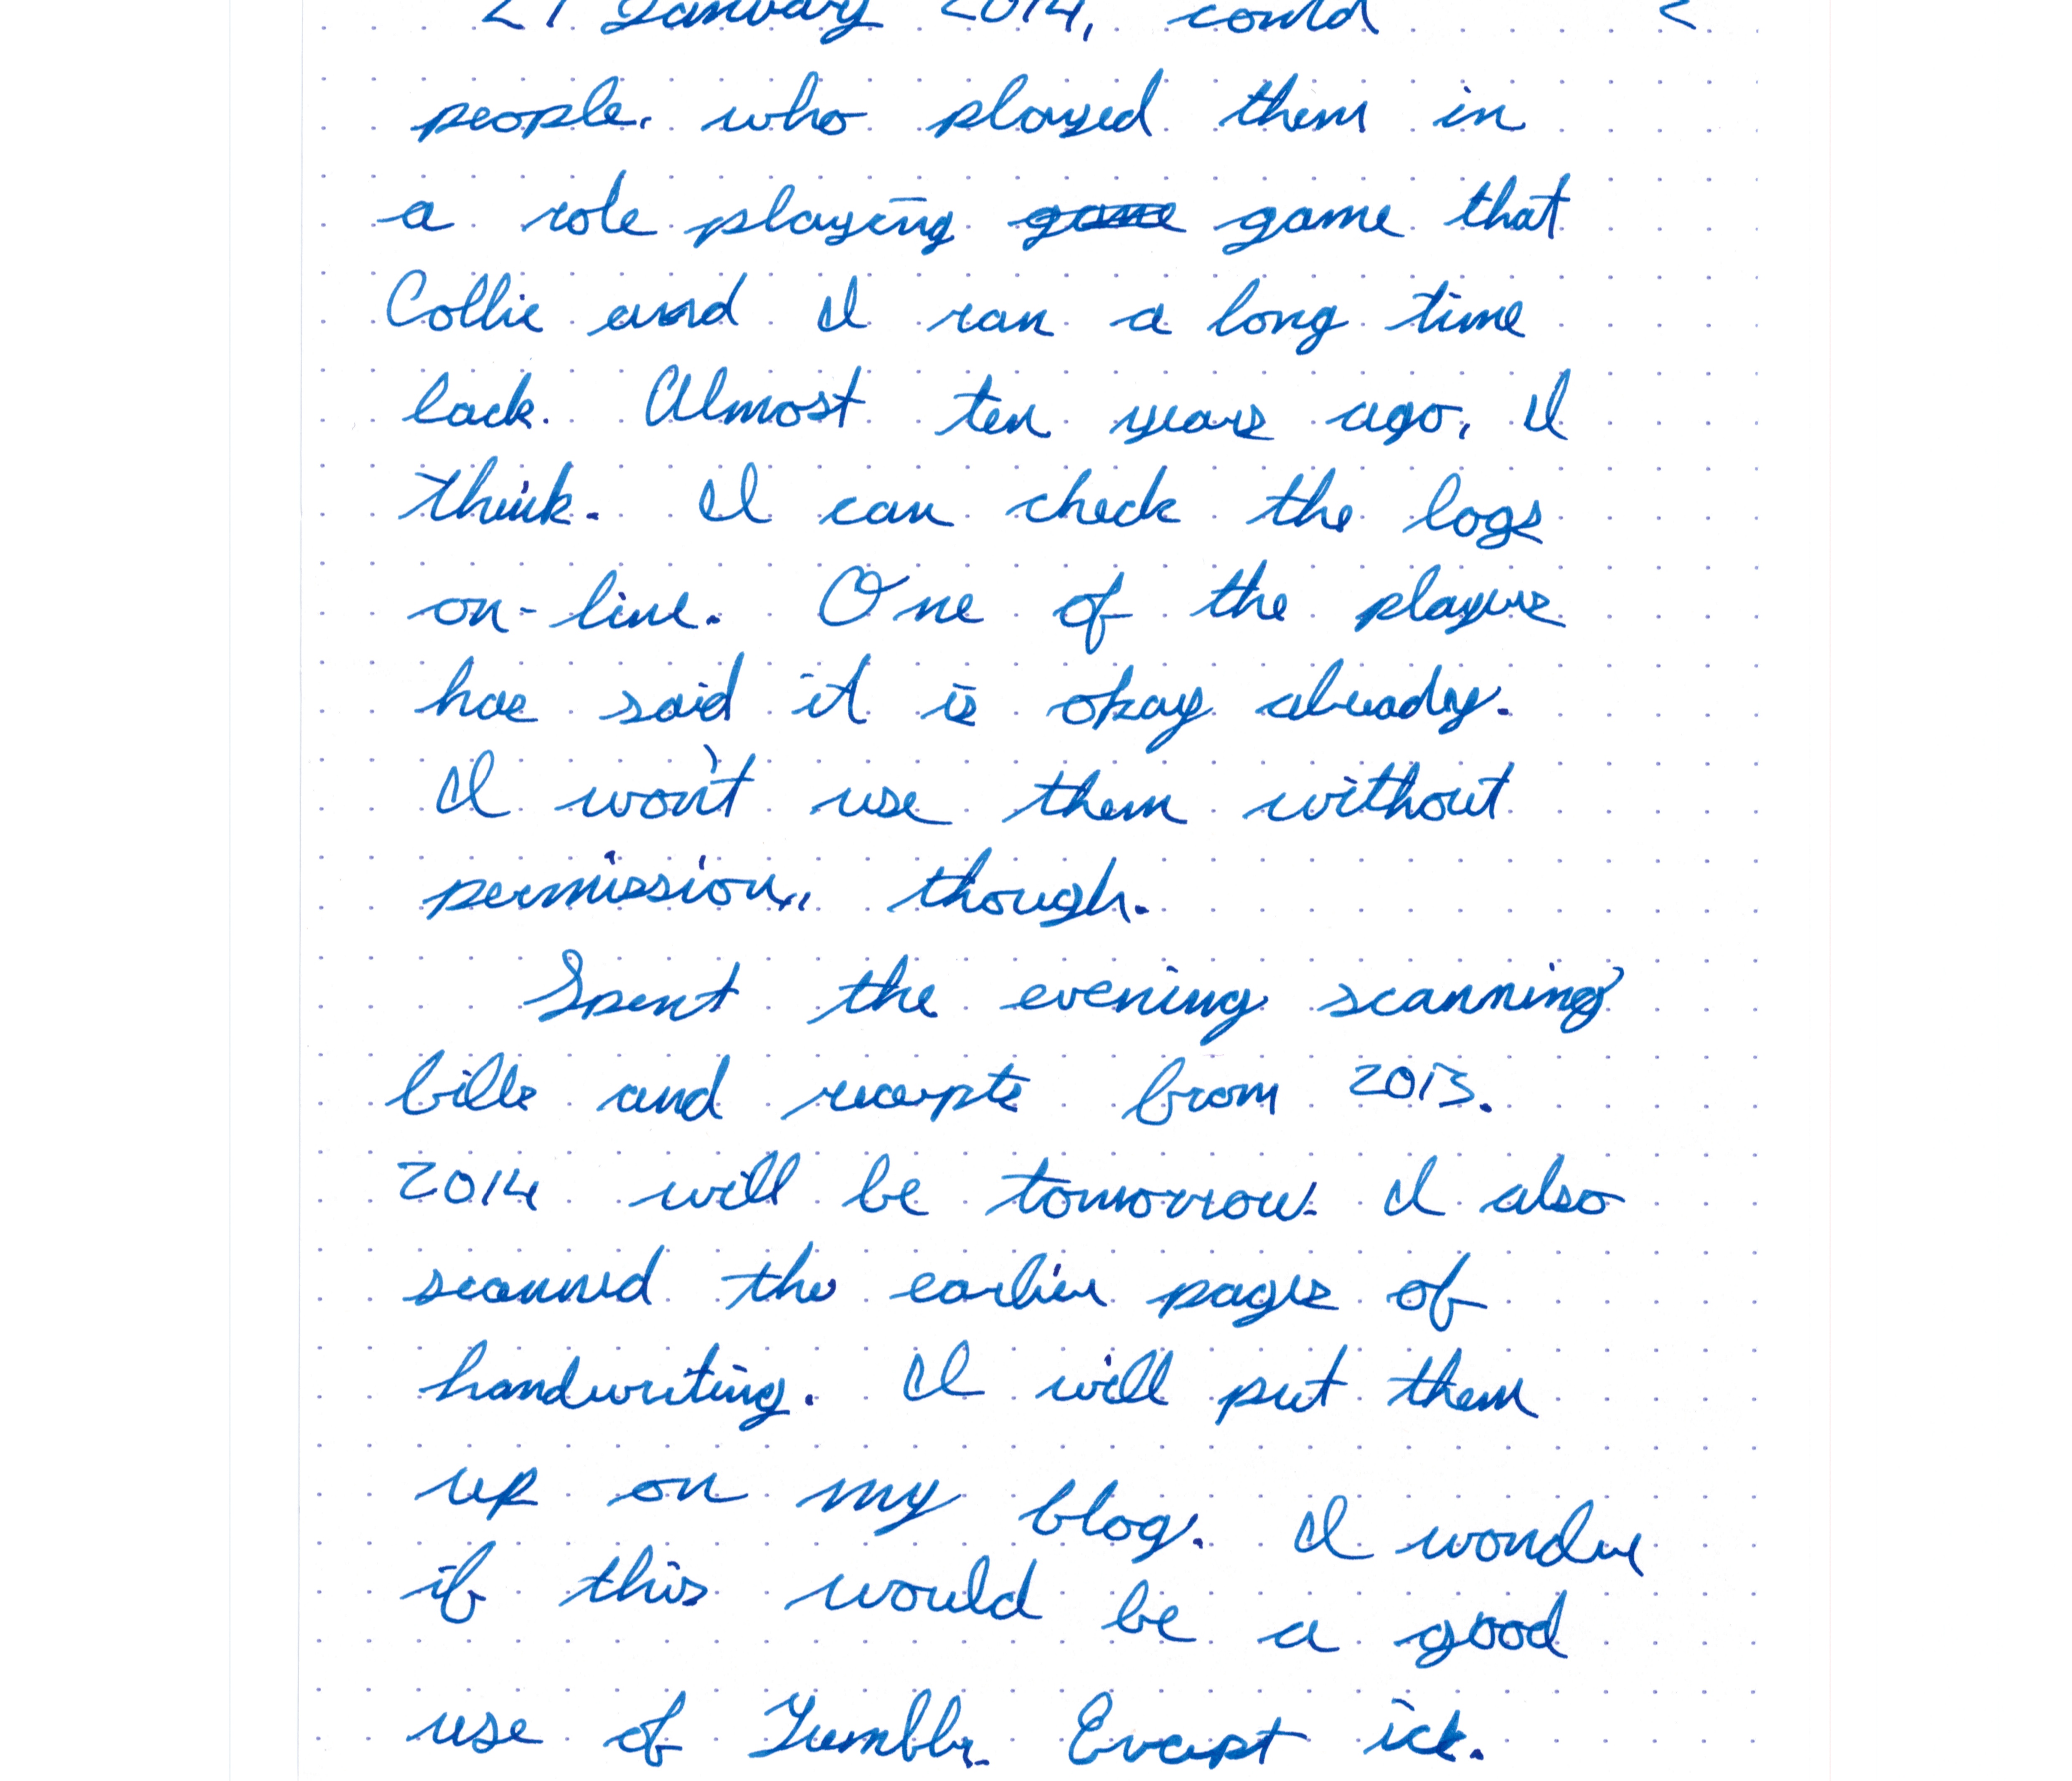 January 2014, could 2
people who played them in
a role playing game game that
Collie and I ran a long time
back. Almost ten years ago, I
think. I can check the logs
on-line. One of the players
has said it is okay already.
I won't use them without
permission, though.
Spent the evening scanning
bills and receipts from 2013.
2014 will be tomorrow. I also
scanned the earlier pages of
handwriting. I will put them
up on my blog. I wonder
if this would be a good
use of Tumblr. Except ick.